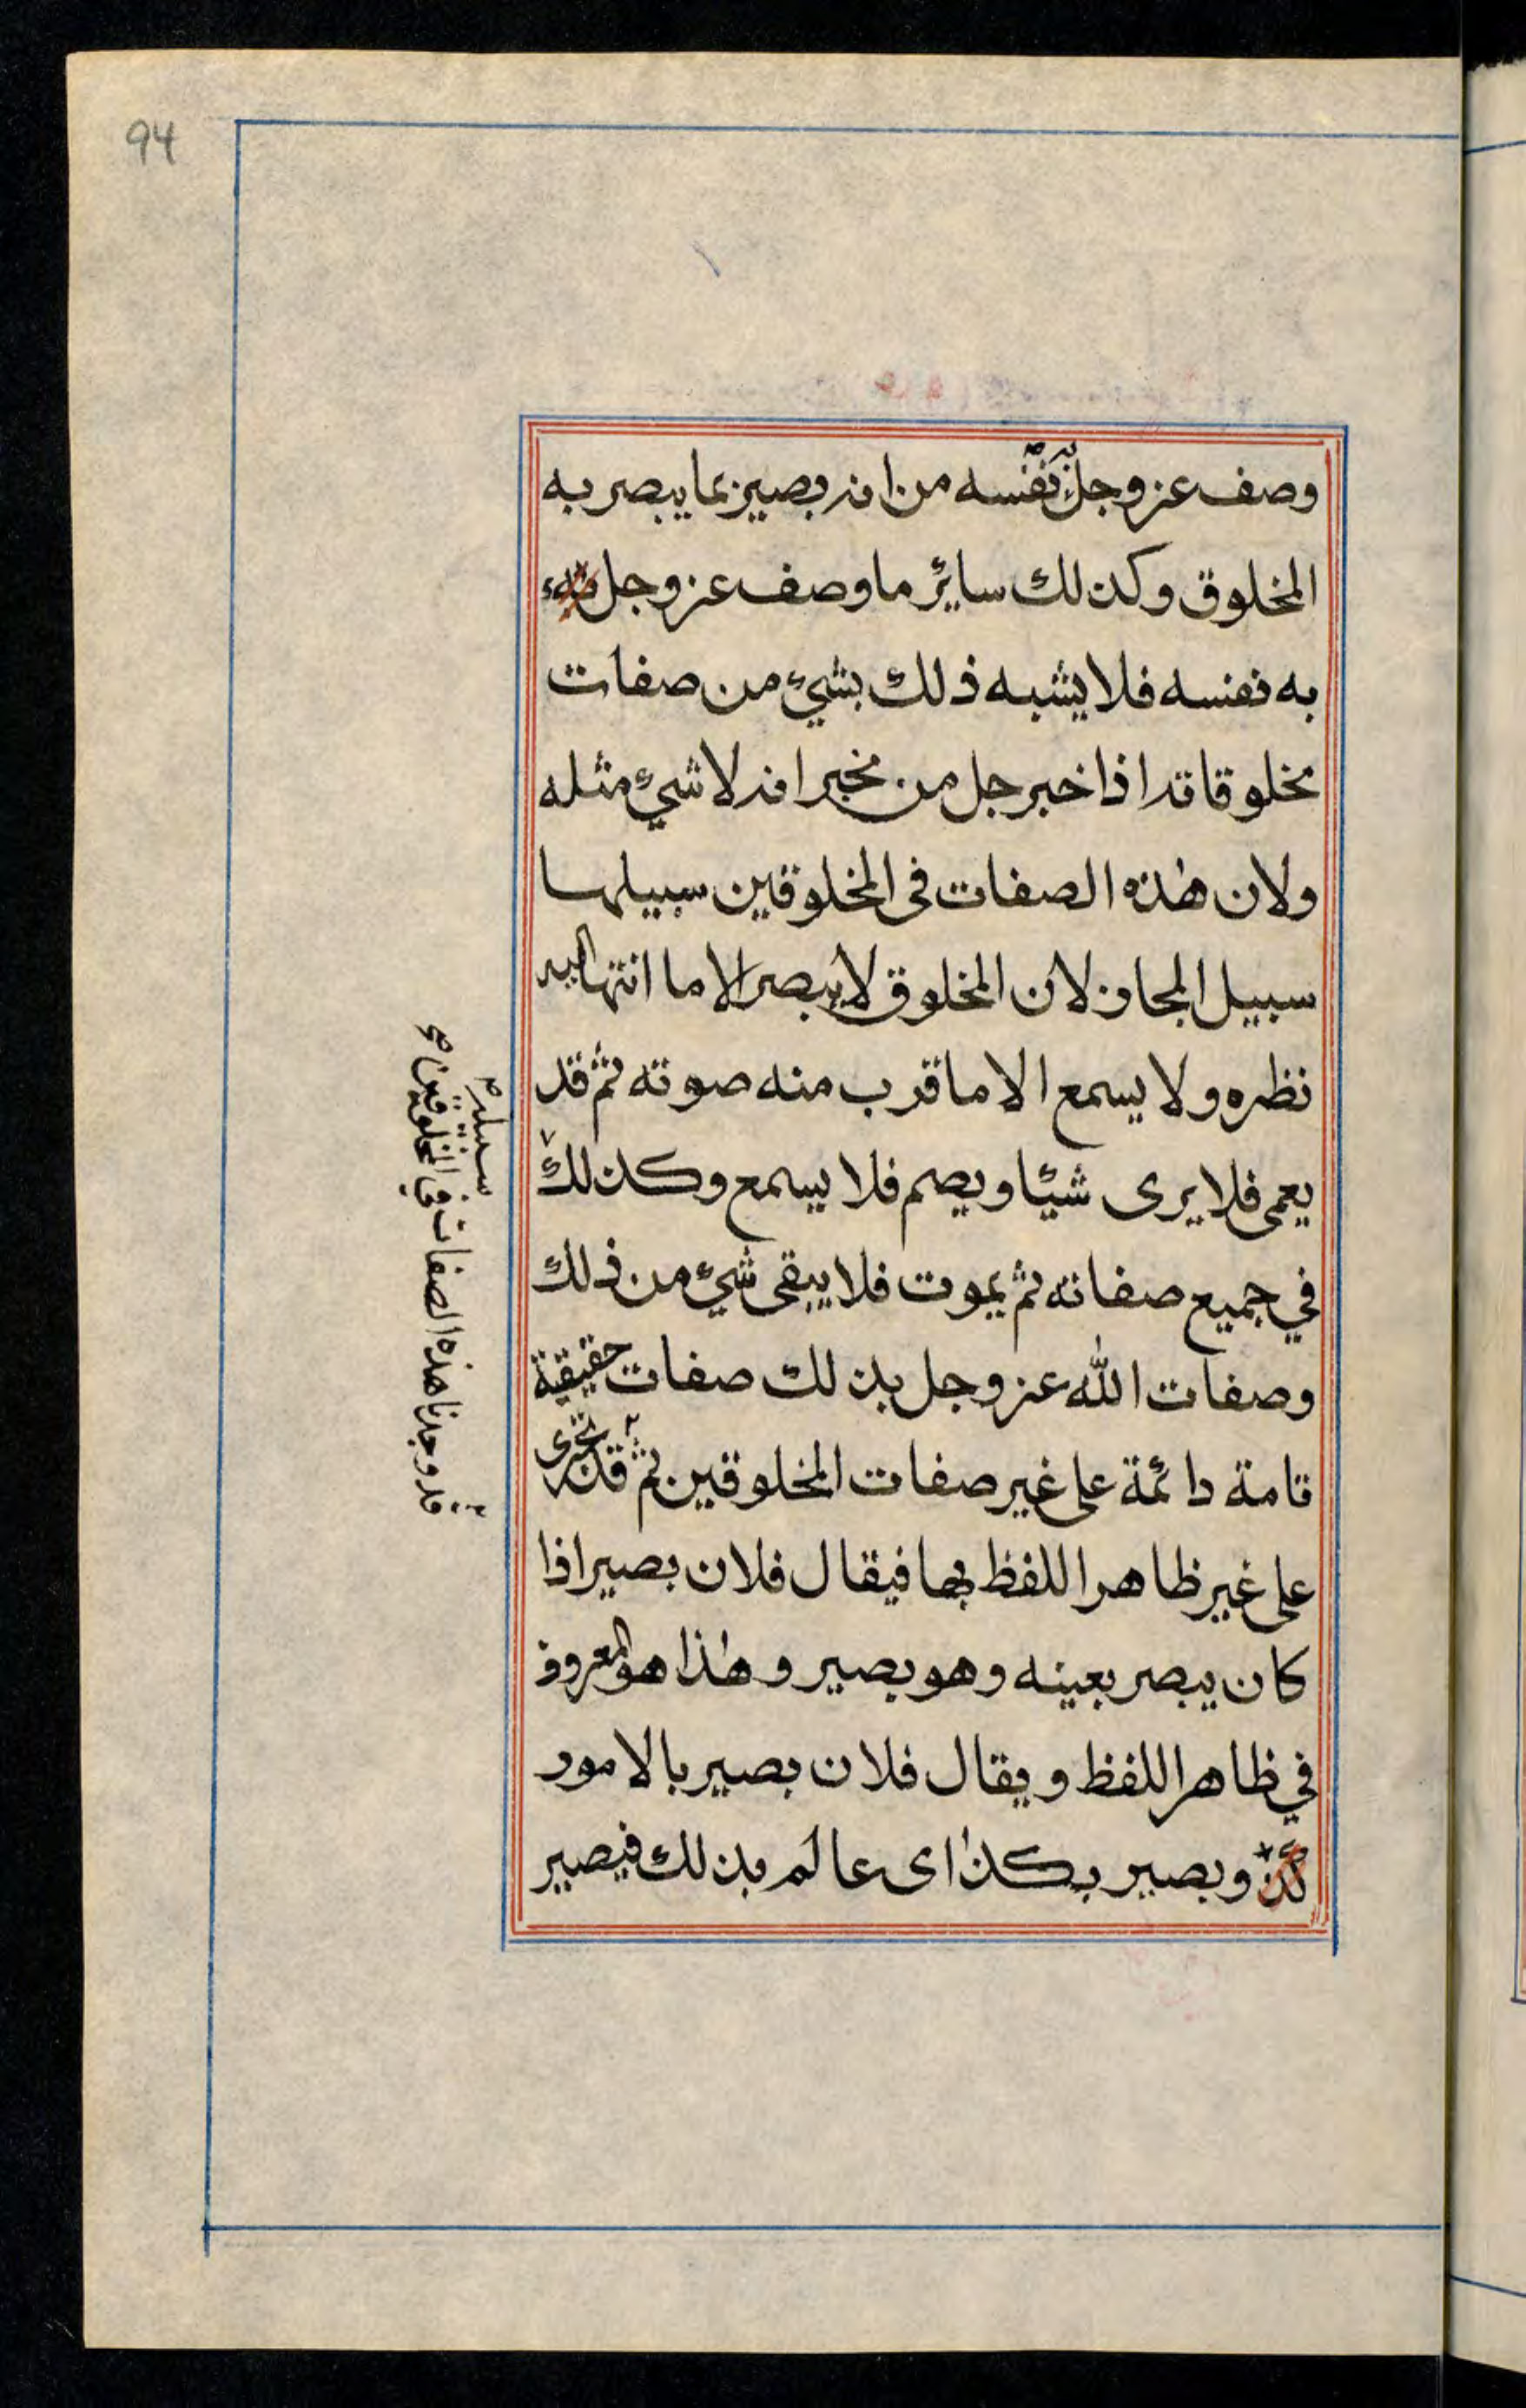 94
وصف عز وجل به نفسه من انه بصير بما يبصر به
المخلوق وكذلك ساير ما وصف عز وجل
به نفسه فلا يشبه ذلك بشيء من صفات
مخلوقاته اذا خبر جل من مخبر انه لا شيء مثله
ولان هذه الصفات فى المخلوقين سبيلها
سبيل المجاز لان المخلوق لا يبصر الا ما انتها اليه
نظره ولا يسمع الا ما قرب منه صوته ثم قد
يعمى فلا يرى شيئا ويصم فلا يسمع وكذلك
في جميع صفاته ثم يموت فلا يبقى شيء من ذلك
وصفات الله عز وجل بذلك صفات حقيقة
تامة دائمة على غير صفات المخلوقين ثم قد تجرى
على غير ظاهر اللفظ بها فيقال فلان بصير اذا
كان يبصر بعينه وهو بصير وهذا هو المعروف
في ظاهر اللفظ ويقال فلان بصير بالامور
وبصير بكذا اى عالم بذلك فيصير
قد وجدنا هذه الصفات في المخلوقين